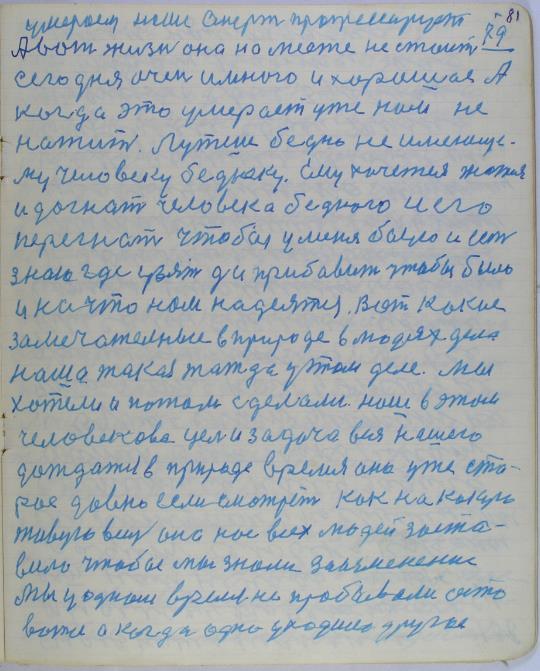 умераем наше Смерт прогрессирует
81
79
А вот жизн она на месте не стоит
сегодня очен и много и хорошая А
когда это умерает уже нам не
нажит. Лутше бедно не имеюще-
му человеку бедняку. Ему хочется жажда
и догнат человека бедного и его
перегнат чтобы у меня было и ест
знаю где взят да прибавит чтобы было
и на что нам надеятся. Вот какие
замечательные в природе в людях дела
наша такая жажда у этом деле. мы
хотели и потом сделали. наше в этом
человекова цель и задача вся нашего
дождатся в природе время она уже ста-
рое давно если смотрет как на какую
живую вещ она нас всех людей заста-
вило чтобы мы знали за изменение
Мы у одном время не пробывали оято
воже а когда одно уходило другое